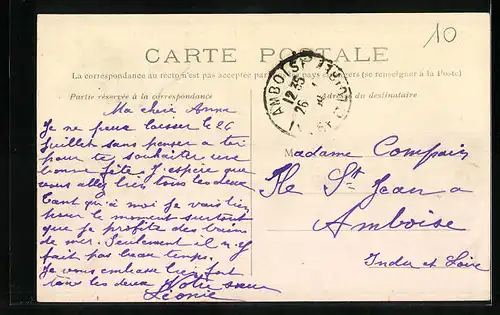 10
CARTE POSTALE
La correspondance au recto n'est pas acceptée par pays étrangers (se renseigner à la Poste)
Partie réservée à la correspondance
Adresse du destinataire
AMBOISE
12 35
26
Ma chère Anna
Je ne peux laisser le 26
Juillet sans penser a toi
pour te souhaiter une
bonne fête. J'espère que
vous allez bien tous les deux
tant qu'à moi je vais bien
pour le moment surtout
que je profite des bains
de mer. Seulement il n'y
fait pas beau temps.
Je vous embrasse bien fort
tous les deux Votre sœur
Léonie
Madame Compain
Ile St Jean a
Amboise
Indre et Loire